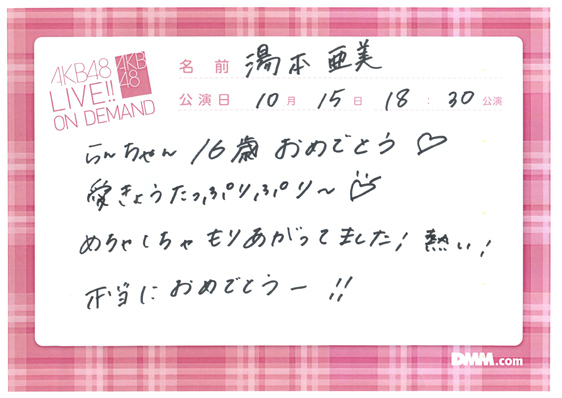 AKB48
LIVE!!
ON DEMAND
AKB
48
名 前 湯本 亜美
公演日 10月 15日 18:30 公演
らんちゃん 16歳 おめでとう♡
愛きょうたっぷりぷり〜
めちゃくちゃもりあがってました! 熱い!
本当に おめでとうー!!
DMM.com